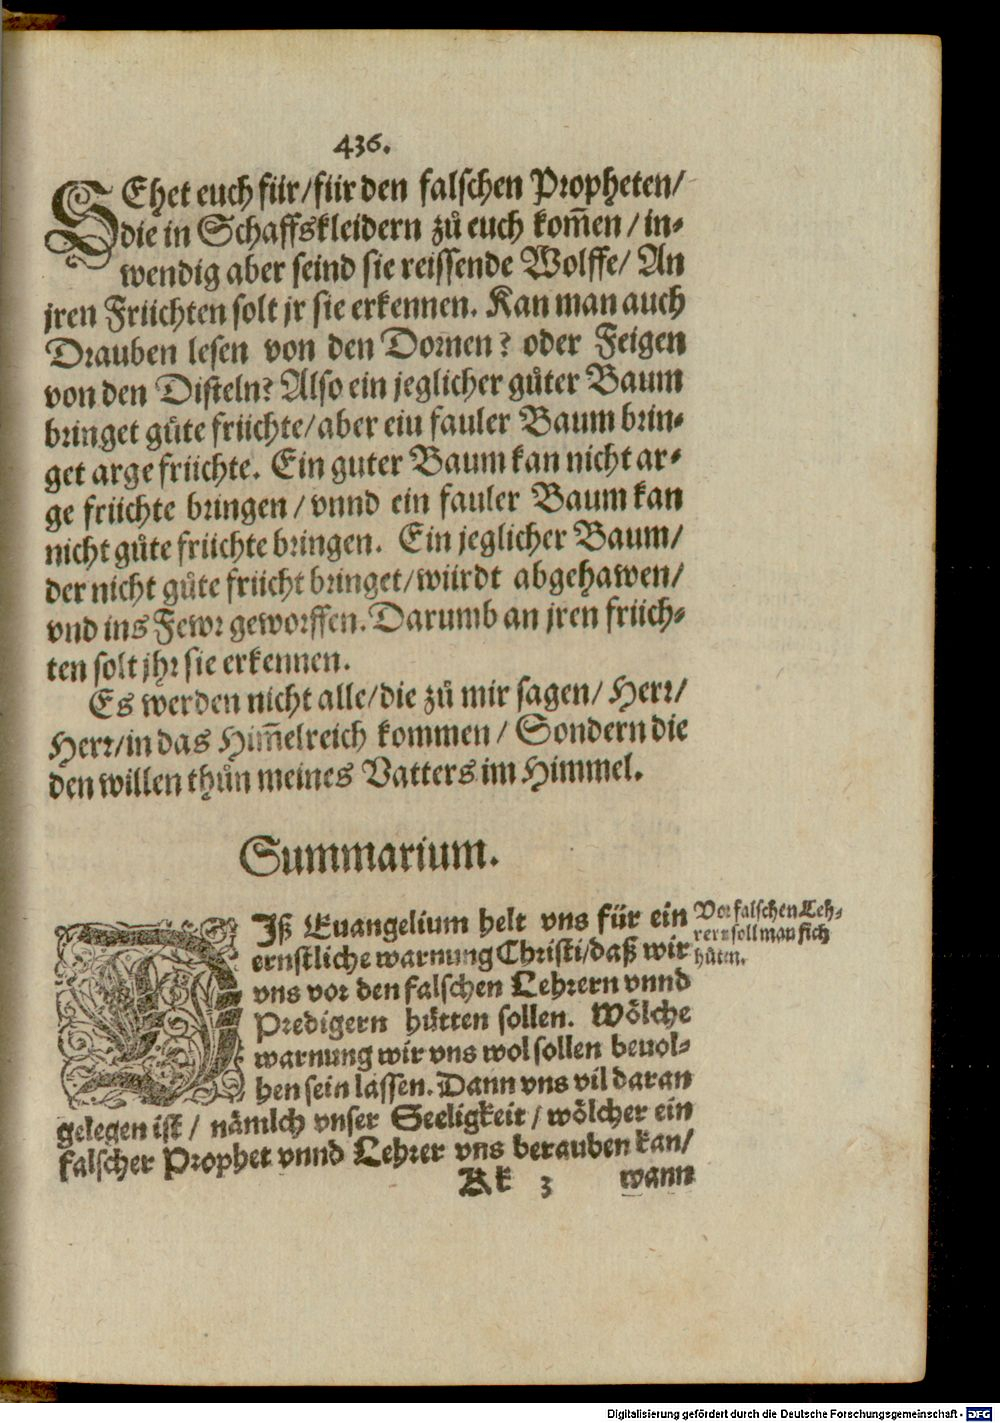 436.
SEhet euch für/für den falschen Propheten/
die in Schaffskleidern zů euch kom̄en/in-
wendig aber seind sie reissende Wolffe/ An
jren Früchten solt jr sie erkennen. Kan man auch
Drauben lesen von den Dornen? oder Feigen
von den Disteln? Also ein jeglicher gůter Baum
bringet gůte früchte/aber eiu fauler Baum brin-
get arge früchte. Ein guter Baum kan nicht ar-
ge früchte bringen/vnnd ein fauler Baum kan
nicht gůte früchte bringen. Ein jeglicher Baum/
der nicht gůte frücht bringet/würdt abgehawen/
vnd ins Fewr geworffen. Darumb an jren früch-
ten solt jhr sie erkennen.
Es werden nicht alle/die zů mir sagen/ Herr/
Herr/in das Him̄elreich kommen/ Sondern die
den willen thůn meines Vatters im Himmel.
Summarium.
DIß Euangelium helt vns für ein
ernstliche warnung Christi/daß wir
vns vor den falschen Lehrern vnnd
Predigern hütten sollen. Wölche
warnung wir vns wol sollen beuol-
hen sein lassen. Dann vns vil daran
gelegen ist/ nämlch vnser Seeligkeit/ wölcher ein
falscher Prophet vnnd Lehrer vns berauben kan/
Kk 3 wann
Vor falschen Leh-
rern soll man sich
hüten.
Digitalisierung gefördert durch die Deutsche Forschungsgemeinschaft - DFG